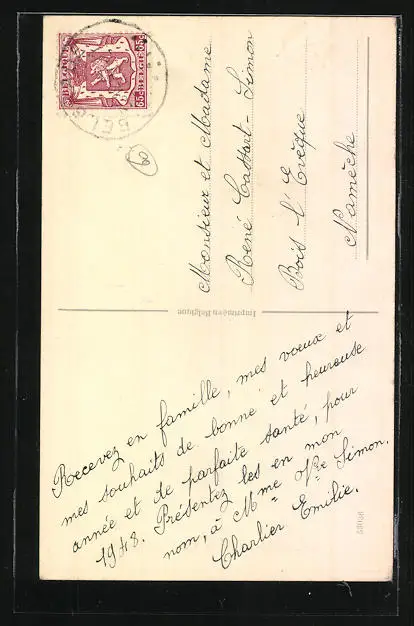 BELGIQUE
65-BELGIE-65
Monsieur et Madame
René Cassart-Simon
Bois l'Evêque
Namèche
Imprimé en Belgique
Recevez en famille, mes voeux et
mes souhaits de bonne et heureuse
année et de parfaite santé, pour
1948. Présentez les en mon
nom, à Mme Vve Simon.
Charlier Emilie.